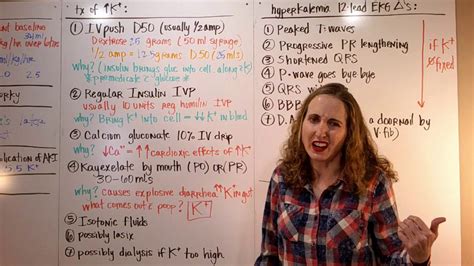 and baseline
kg/hr over before
2.0 2.5
orky
plication of AKI
5.5 K⁺
tx of ↑K⁺:
① IV push D50 (usually ½ amp)
Dextrose 25 grams (50 ml syringe)
½ amp = 12.5 grams D50 (25 ml)
why? (insulin brings gluc into cell along c̄ K⁺)
② Regular Insulin IVP
usually 10 units reg humolin IVP
why? Bring K⁺ into cell = ↓K⁺ in blood
③ Calcium gluconate 10% IV drip
why? ↓Ca⁺⁺ = ↑↑ cardioxic effects of ↑K⁺
④ Kayexelate by mouth (PO) or (PR)
30-60 mls
why? causes explosive diarrhea ↑K⁺ in gut
what comes out c̄ poop? K⁺
⑤ Isotonic fluids
⑥ possibly lasix
⑦ possibly dialysis if K⁺ too high
hyperkalemia 12-lead EKG Δ's:
① Peaked T-waves
② Progressive PR lengthening
③ Shortened QRS
④ P-wave goes bye bye
⑤ QRS
⑥ BBB
⑦ D.
a doornail by
V-fib)
if K⁺
∅ fixed